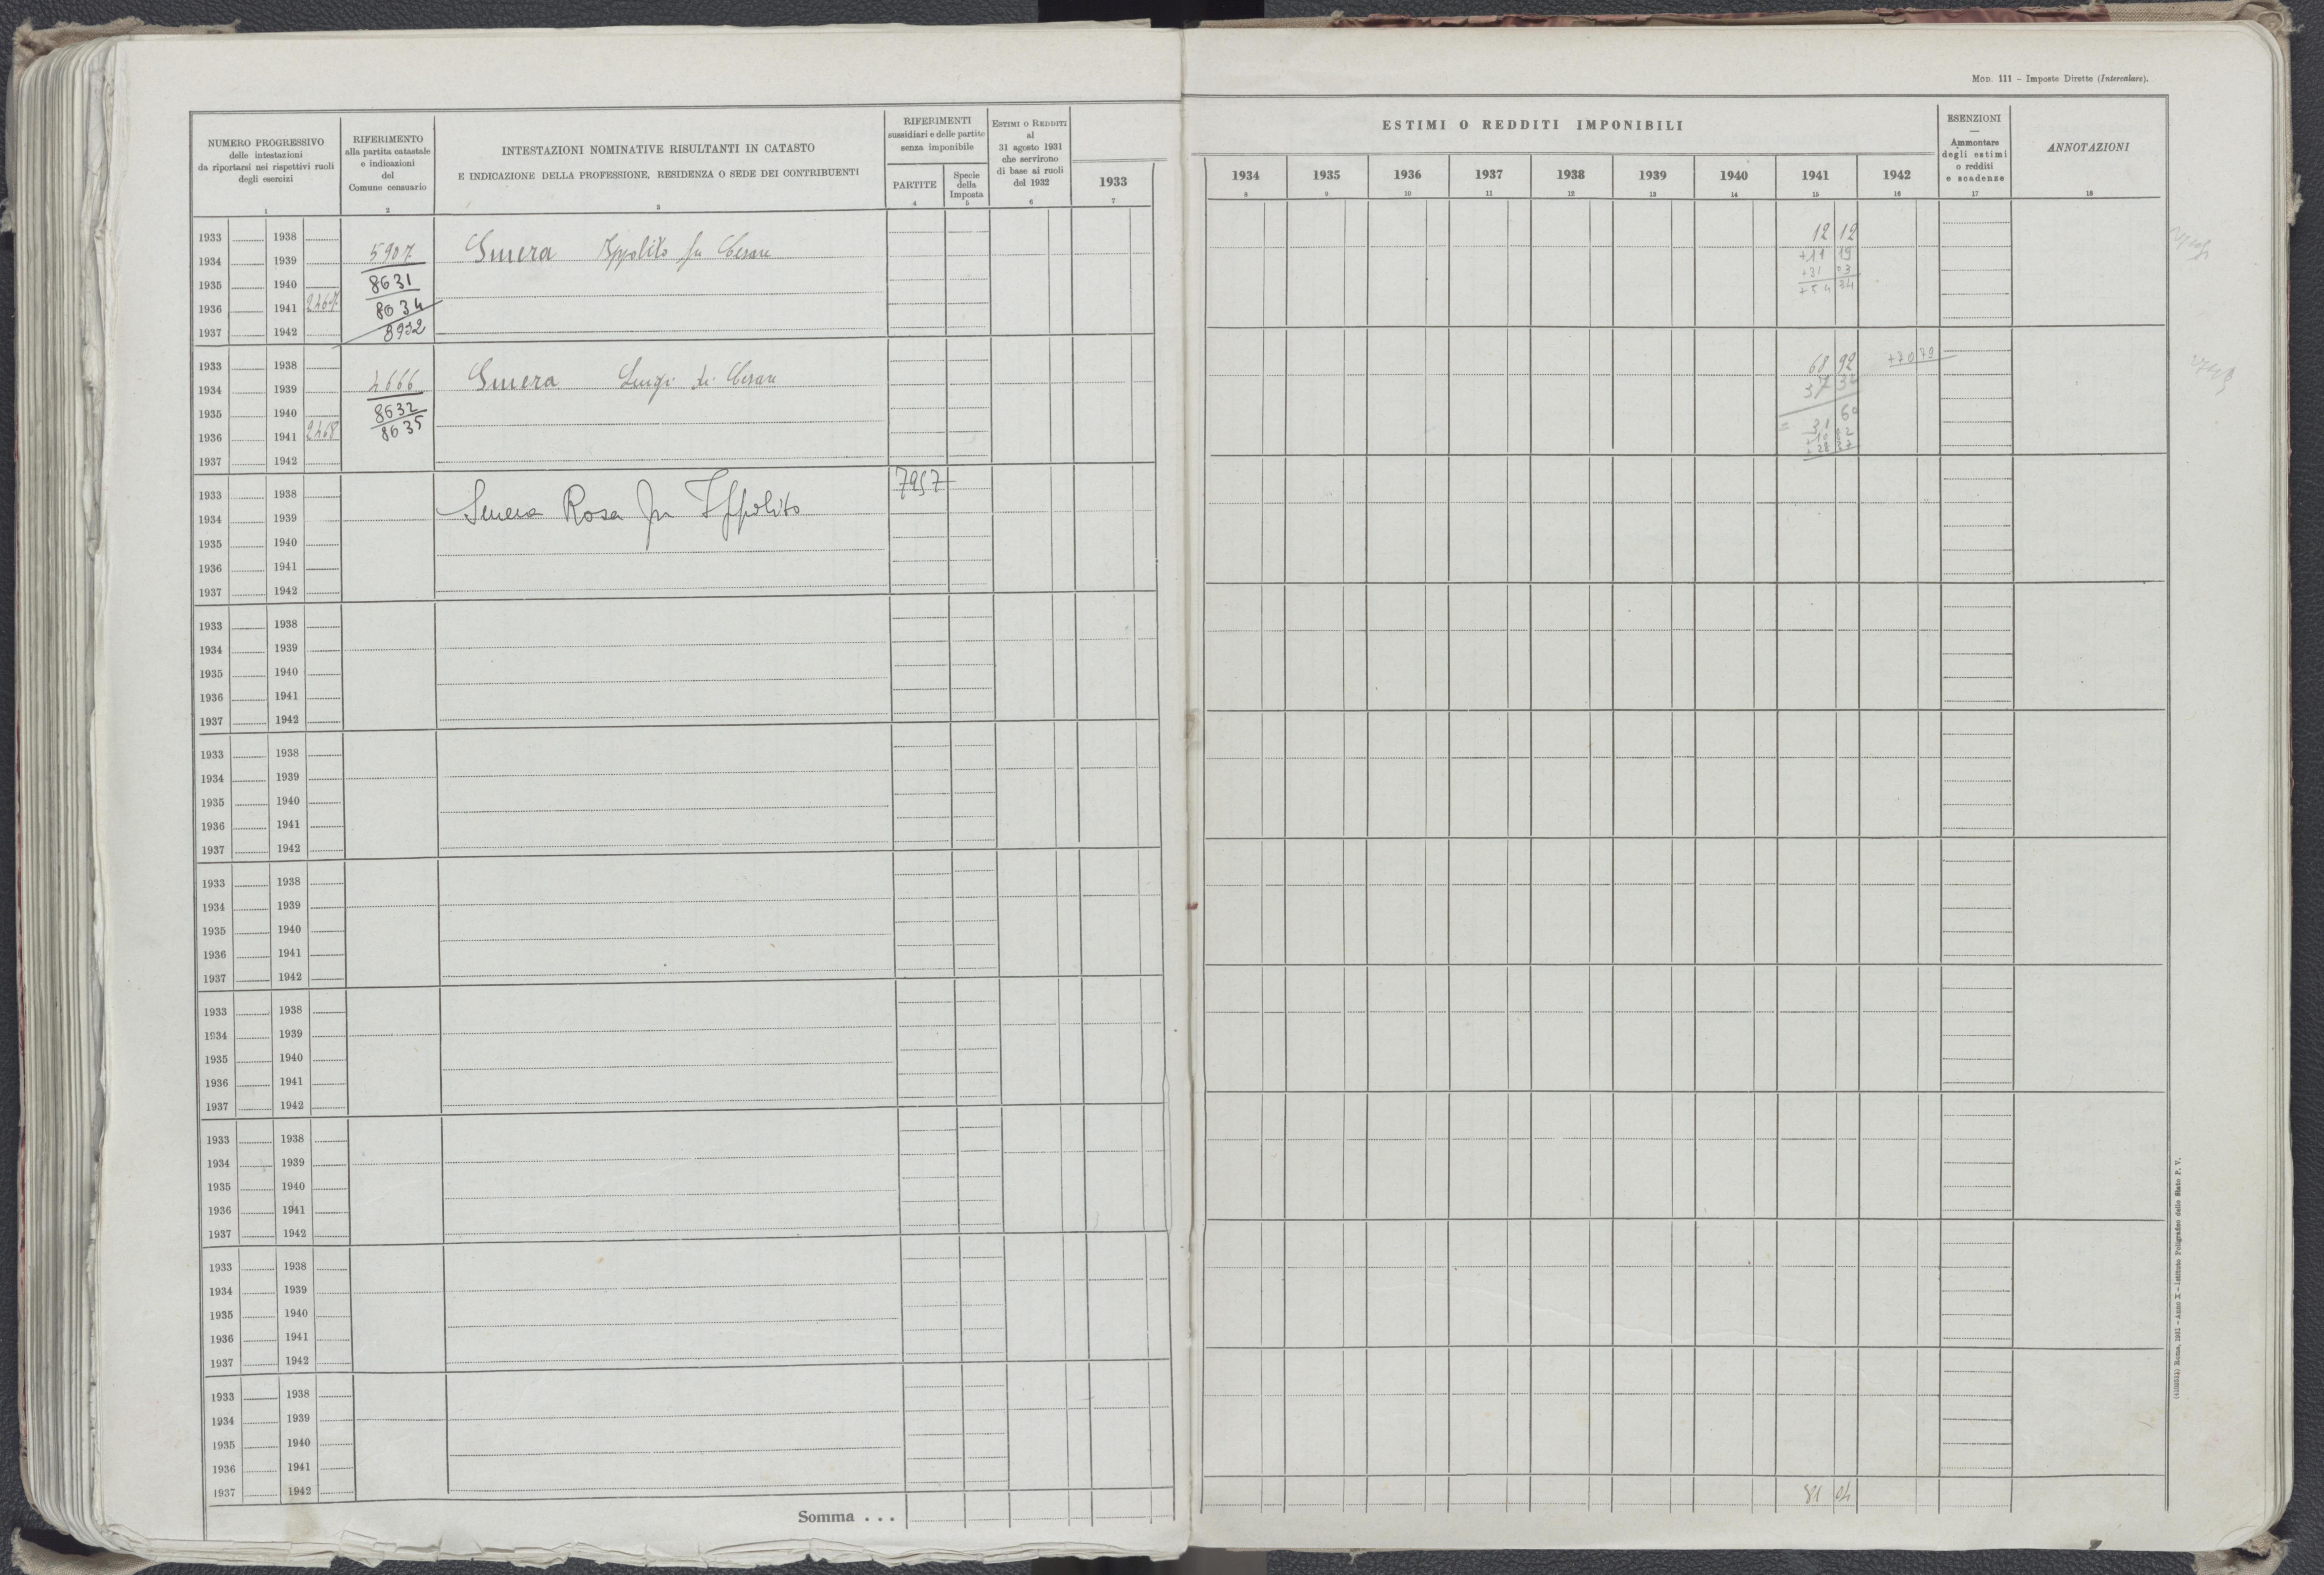 Mod. 111 - Imposte Dirette (Intercalare).
NUMERO PROGRESSIVO
delle intestazioni
da riportarsi nei rispettivi ruoli
degli esercizi
1
RIFERIMENTO
alla partita catastale
e indicazioni
del
Comune censuario
2
INTESTAZIONI NOMINATIVE RISULTANTI IN CATASTO
E INDICAZIONE DELLA PROFESSIONE, RESIDENZA O SEDE DEI CONTRIBUENTI
3
RIFERIMENTI
sussidiari e delle partite
senza imponibile
PARTITE
4
Specie
della
Imposta
5
ESTIMI O REDDITI
al
31 agosto 1931
che servirono
di base ai ruoli
del 1932
6
1933
7
ESTIMI O REDDITI IMPONIBILI
1934 1935 1936 1937 1938 1939 1940 1941 1942
8 9 10 11 12 13 14 15 16
ESENZIONI
—
Ammontare
degli estimi
o redditi
e scadenze
17
ANNOTAZIONI
18
1933 1938 12 12
1934 1939 5907 Smera Ippolito fu Cesare +11 19
1935 1940 8631 +31 03
1936 1941 2467 8634 +54 34
1937 1942 8932
1933 1938 68 92 +70 79
1934 1939 4666 Smera Luigi di Cesare
1935 1940 8632
1936 1941 2468 8635
1937 1942
1933 1938 7957
1934 1939 Smera Rosa fu Ippolito
1935 1940
1936 1941
1937 1942
1933 1938
1934 1939
1935 1940
1936 1941
1937 1942
1933 1938
1934 1939
1935 1940
1936 1941
1937 1942
1933 1938
1934 1939
1935 1940
1936 1941
1937 1942
1933 1938
1934 1939
1935 1940
1936 1941
1937 1942
1933 1938
1934 1939
1935 1940
1936 1941
1937 1942
1933 1938
1934 1939
1935 1940
1936 1941
1937 1942
1933 1938
1934 1939
1935 1940
1936 1941
1937 1942
Somma . . . 81 04
Roma, 1931 - Anno X - Istituto Poligrafico dello Stato P. V.